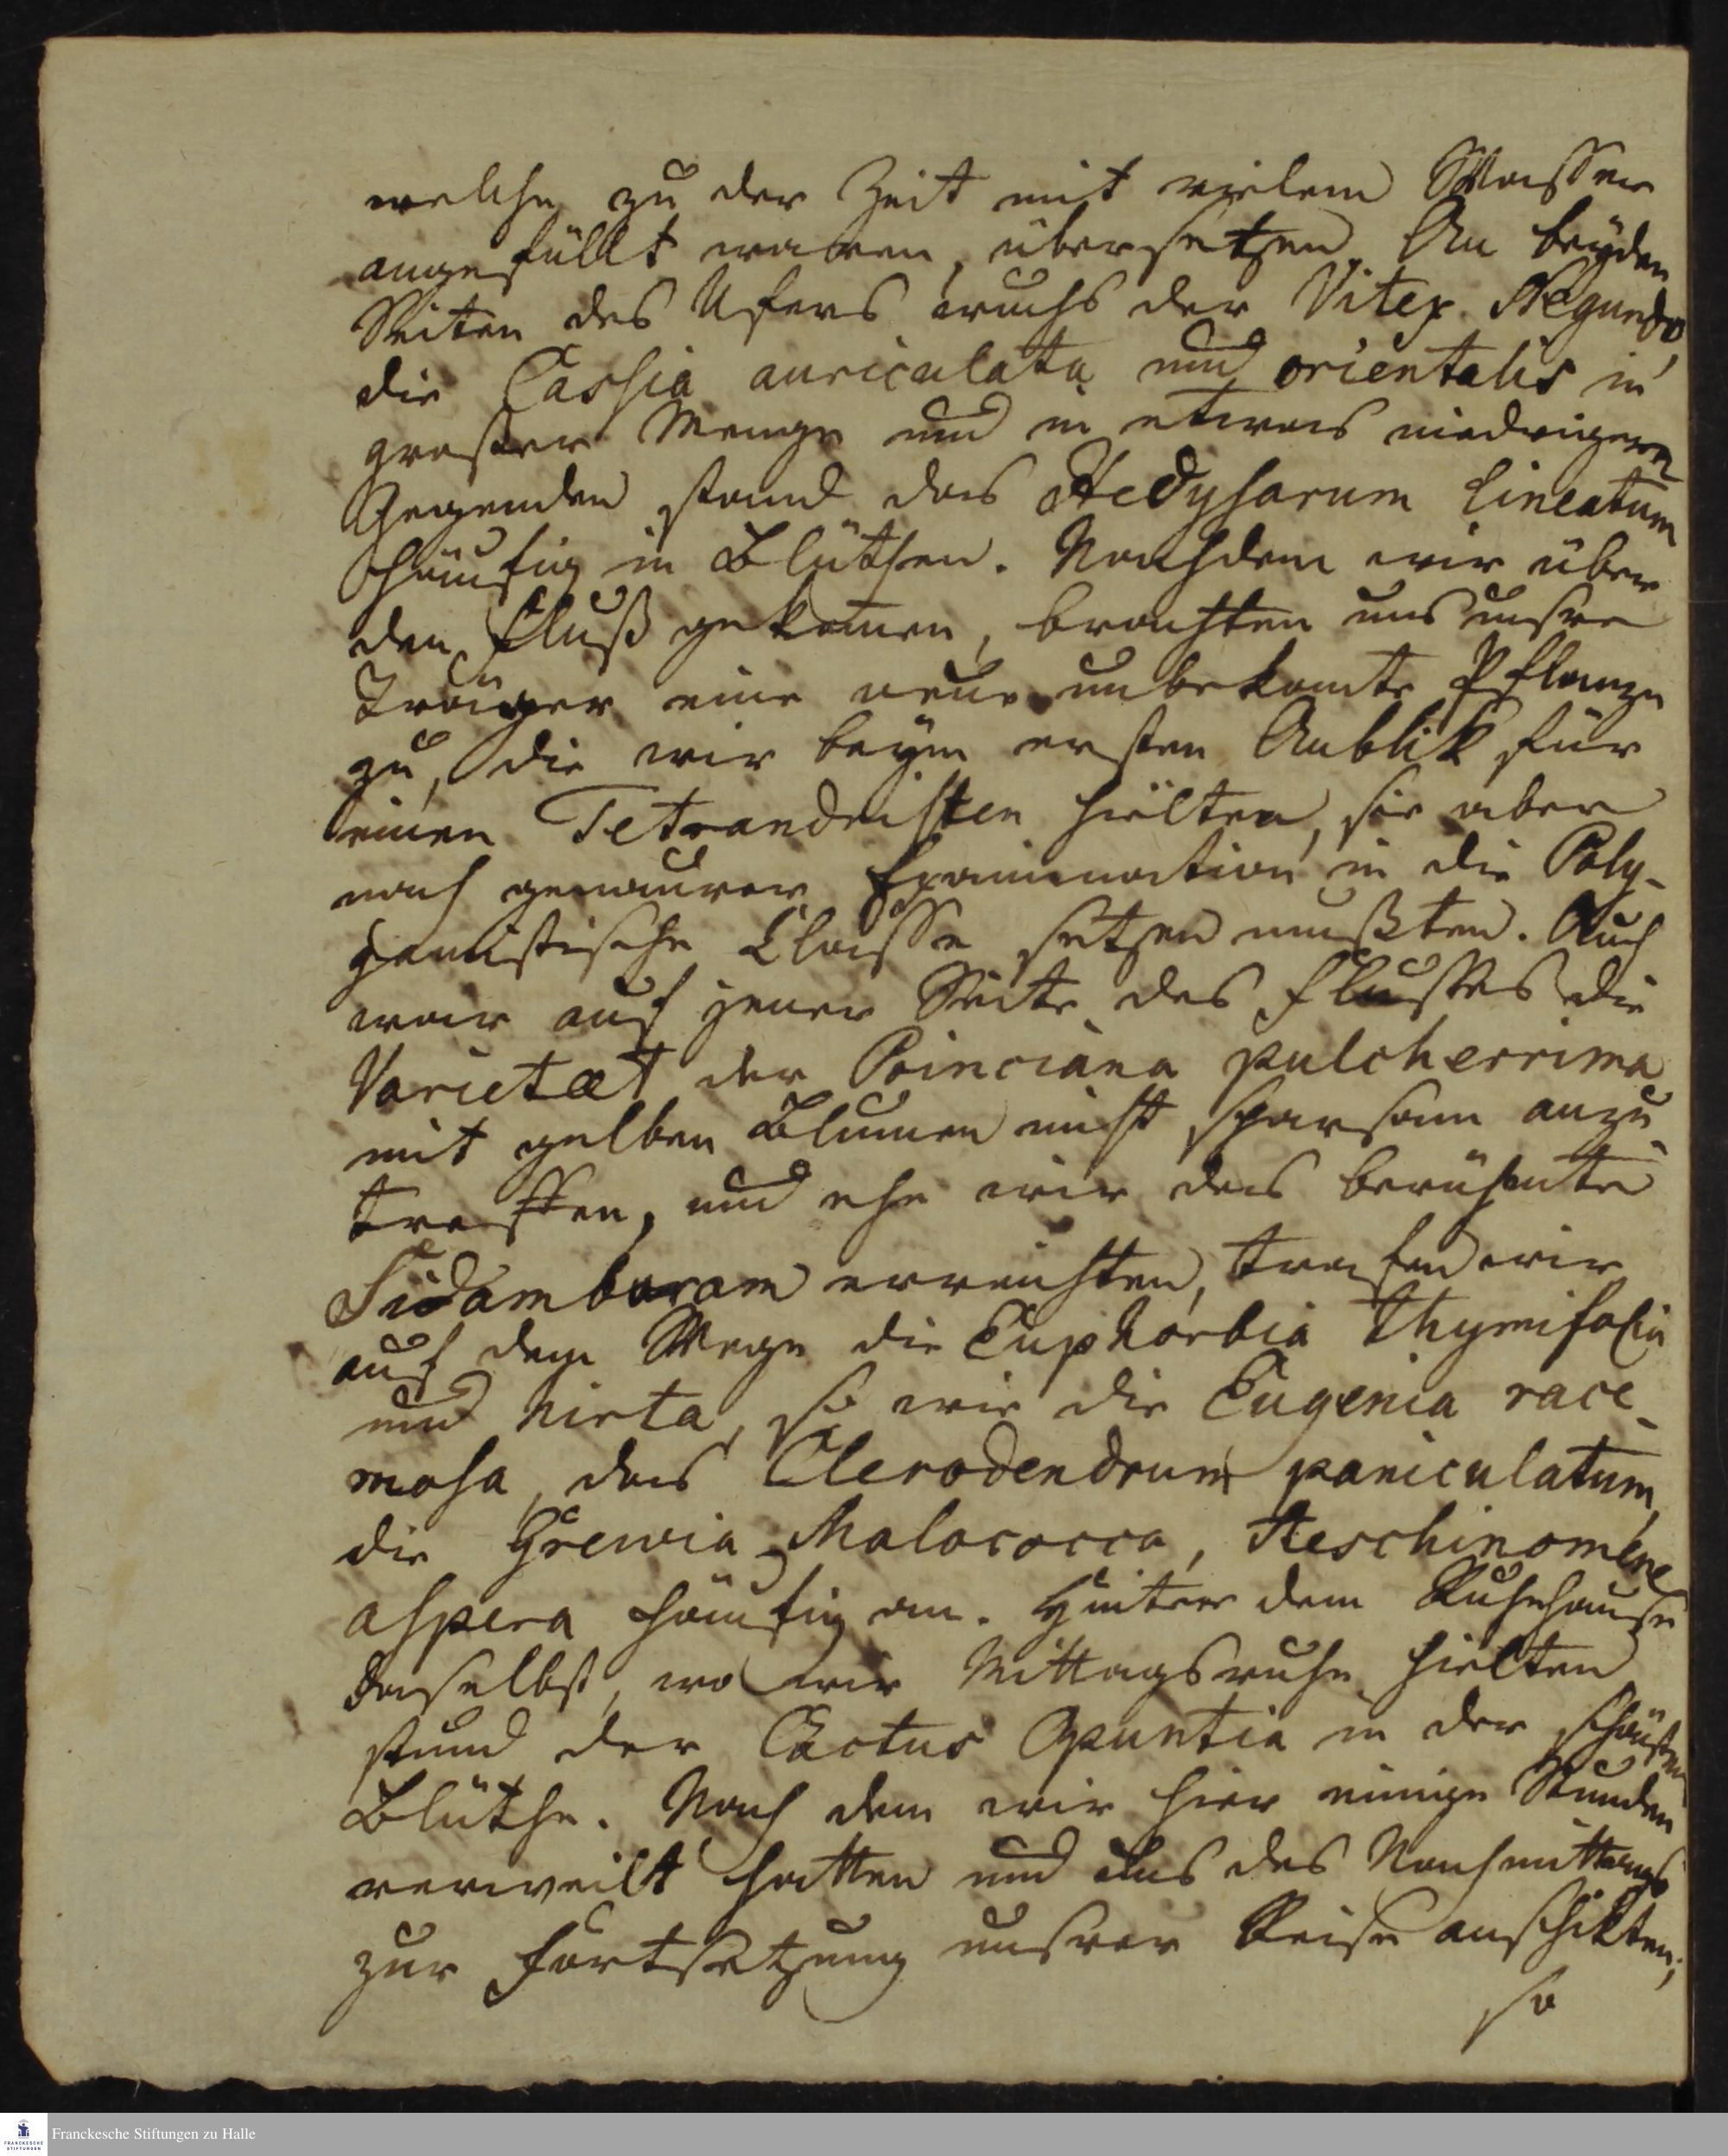 welche zu der Zeit mit vielem Wasser
angefüllt waren, übersetzen. An beyden
Seiten des Ufers wuchs der Vitex Negundo,
die Cassia auriculata und orientalis in
großer Menge und in etwas niedrigern
Gegenden stand das Hedysarum lineatum
häufig in Blüthen. Nachdem wir über
den Fluß gekomen, brachten uns unsre
Träger eine neue unbekante Pflanze
zu, die wir beym ersten Anblik für
einen Tetrandristen hielten, sie aber
nach genaurer Examination in die Poly-
gamistische Classe setzen mußten. Auch
war auf jener Seite des Flusses die
Varietæt der Poinciana pulcherrima
mit gelben Blumen nicht sparsam anzu-
treffen, und ehe wir das berühmte
Sidambaram erreichten, trafen wir
auf dem Wege die Euphorbia thymifolia
und hirta, so wie die Eugenia race-
mosa, das Clerodendrum paniculatum,
die Grewia Malococca, Aeschinomene
aspera häufig an. Hinter dem Ruhehause
daselbst, wo wir Mittagsruhe hielten
stund der Cactus Opuntia in der schönsten
Blüthe. Nach dem wir hier einige Stunden
verweilt hatten und uns des Nachmittags
zur Fortsetzung unsrer Reise anschikten,
so
Franckesche Stiftungen zu Halle